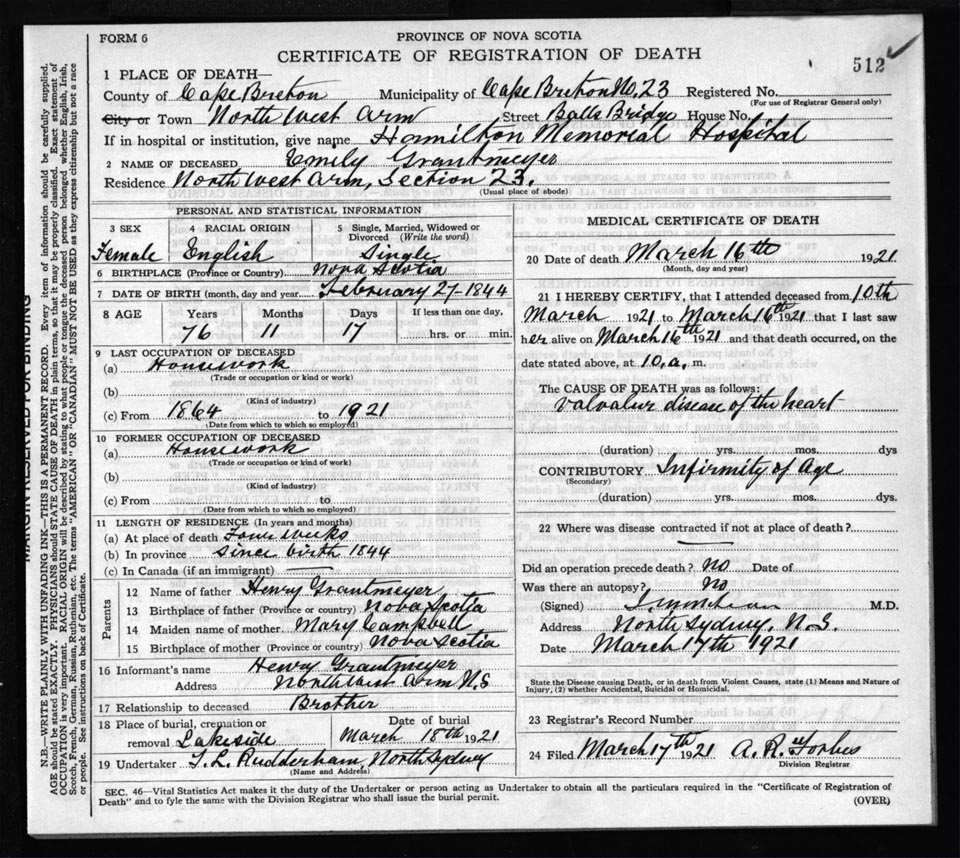 FORM 6
PROVINCE OF NOVA SCOTIA
CERTIFICATE OF REGISTRATION OF DEATH
512
1 PLACE OF DEATH—
County of Cape Breton Municipality of Cape Breton No. 23 Registered No.
(For use of Registrar General only)
City or Town North West Arm Street Balls Bridge House No.
If in hospital or institution, give name Hamilton Memorial Hospital
2 NAME OF DECEASED Emily Grantmeyer
Residence North West Arm, Section 23.
(Usual place of abode)
PERSONAL AND STATISTICAL INFORMATION
3 SEX 4 RACIAL ORIGIN 5 Single, Married, Widowed or Divorced (Write the word)
Female English Single
6 BIRTHPLACE (Province or Country) Nova Scotia
7 DATE OF BIRTH (month, day and year) February 27-1844
8 AGE Years Months Days If less than one day,
76 11 17 hrs. or min.
9 LAST OCCUPATION OF DECEASED
(a) Housework
(Trade or occupation or kind or work)
(b)
(Kind of industry)
(c) From 1864 to 1921
(Date from which to which so employed)
10 FORMER OCCUPATION OF DECEASED
(a) Housework
(Trade or occupation or kind of work)
(b)
(Kind of industry)
(c) From to
(Date from which to which so employed)
11 LENGTH OF RESIDENCE (In years and months)
(a) At place of death Four weeks
(b) In province since birth 1844
(c) In Canada (if an immigrant)
Parents
12 Name of father Henry Grantmeyer
13 Birthplace of father (Province or country) Nova Scotia
14 Maiden name of mother Mary Campbell
15 Birthplace of mother (Province or country) Nova Scotia
16 Informant's name Henry Grantmeyer
Address North West Arm N.S
17 Relationship to deceased Brother
18 Place of burial, cremation or Date of burial
removal Lakeside March 18th 1921
19 Undertaker T. L. Rudderham, North Sydney
(Name and Address)
MEDICAL CERTIFICATE OF DEATH
20 Date of death March 16th 1921
(Month, day and year)
21 I HEREBY CERTIFY, that I attended deceased from 10th
March 1921 to March 16th 1921 that I last saw
her alive on March 16th 1921 and that death occurred, on the
date stated above, at 10, a, m.
The CAUSE OF DEATH was as follows:
valvalur disease of the heart
(duration) yrs. mos. dys
CONTRIBUTORY Infirmity of Age
(Secondary)
(duration) yrs. mos. dys.
22 Where was disease contracted if not at place of death?
Did an operation precede death? No Date of
Was there an autopsy? No
(Signed) M.D.
Address North Sydney, N.S.
Date March 17th 1921
State the Disease causing Death, or in death from Violent Causes, state (1) Means and Nature of
Injury, (2) whether Accidental, Suicidal or Homicidal.
23 Registrar's Record Number
24 Filed March 17th 1921 A. R. Forbes
Division Registrar
SEC. 46—Vital Statistics Act makes it the duty of the Undertaker or person acting as Undertaker to obtain all the particulars required in the "Certificate of Registration of
Death" and to fyle the same with the Division Registrar who shall issue the burial permit.
(OVER)
MARGIN RESERVED FOR BINDING
N.B.—WRITE PLAINLY WITH UNFADING INK—THIS IS A PERMANENT RECORD. Every item of information should be carefully supplied.
AGE should be stated EXACTLY. PHYSICIANS should STATE CAUSE OF DEATH in plain terms, so that it may be properly classified. Exact statement of
OCCUPATION is very important. RACIAL ORIGIN will be described by stating to what people or tongue the deceased person belonged, whether English, Irish,
Scotch, French, German, Russian, Ruthenian, etc. The terms "AMERICAN" OR "CANADIAN" MUST NOT BE USED as they express citizenship but not a race
or people. See instructions on back of Certificate.